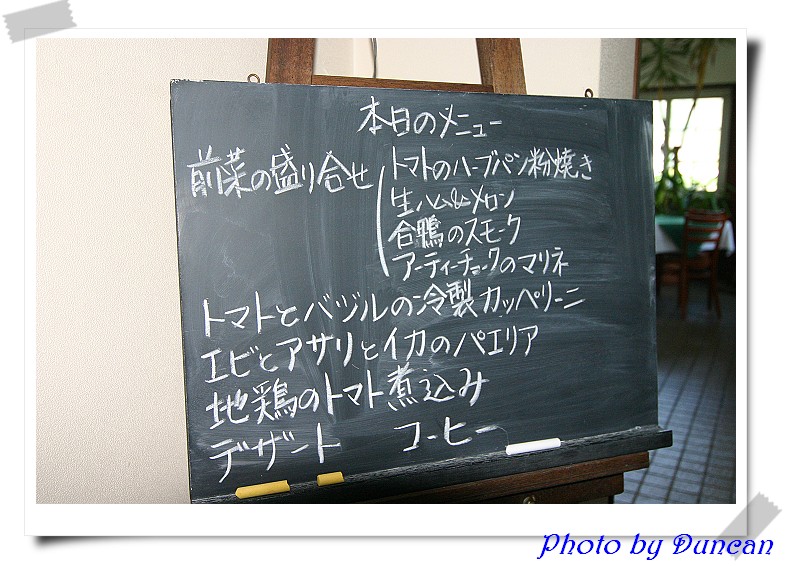 本日のメニュー
前菜の盛り合せ
トマトのハーブパン粉焼き
生ハム&メロン
合鴨のスモーク
アーティーチョークのマリネ
トマトとバジルの冷製カッペリーニ
エビとアサリとイカのパエリア
地鶏のトマト煮込み
デザート コーヒー
Photo by Duncan